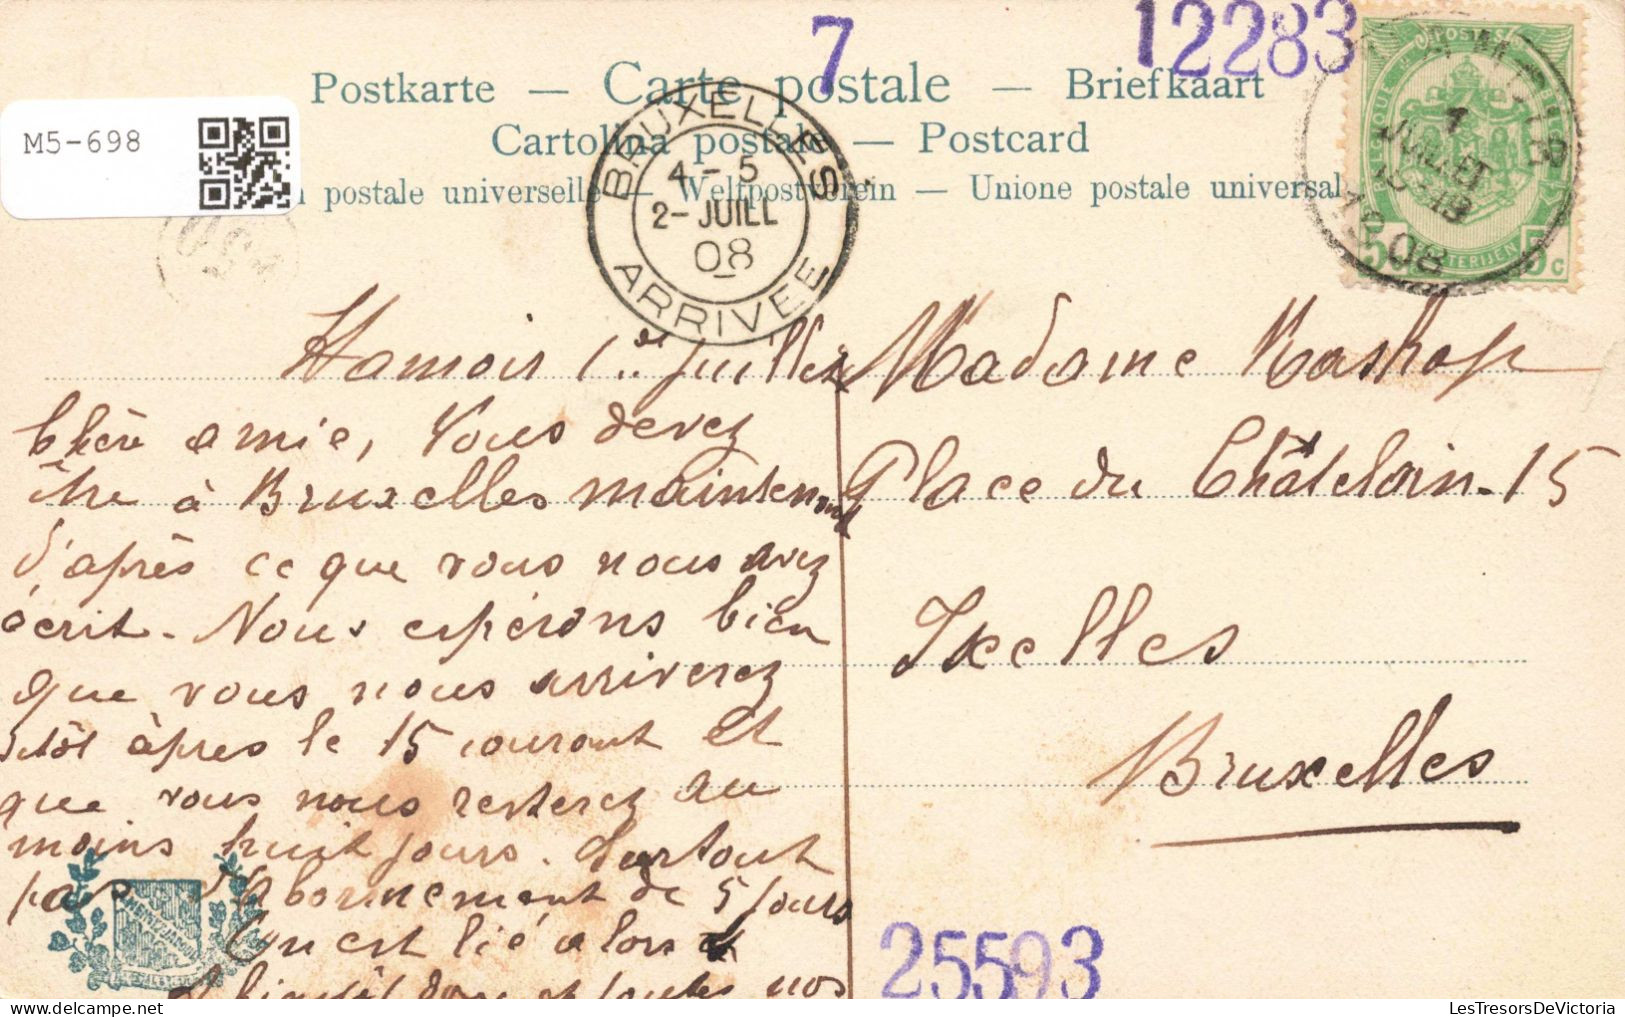 7
12283
Postkarte — Carte postale — Briefkaart
Cartolina postale — Postcard
postale universelle — Weltpostverein — Unione postale universal
M5-698
BRUXELLES
4-5
2-JUILL
08
ARRIVEE
POSTES
BELGIQUE
1
JUILLET
1908
5c
Hamoir 1er juillet
Chère amie, Vous devez
être à Bruxelles maintenant
d'après ce que vous nous avez
écrit. Nous espérons bien
que vous nous arriverez
sitôt àpres le 15 courant et
que vous nous resterez au
moins huit jours. Surtout
pas d'abonnement de 5 jours
On est lié alors
A bientôt donc et toutes nos
Madame
Place du Châtelain. 15
Ixelles
Bruxelles
NEMITZJANA
25593
LesTresorsDeVictoria